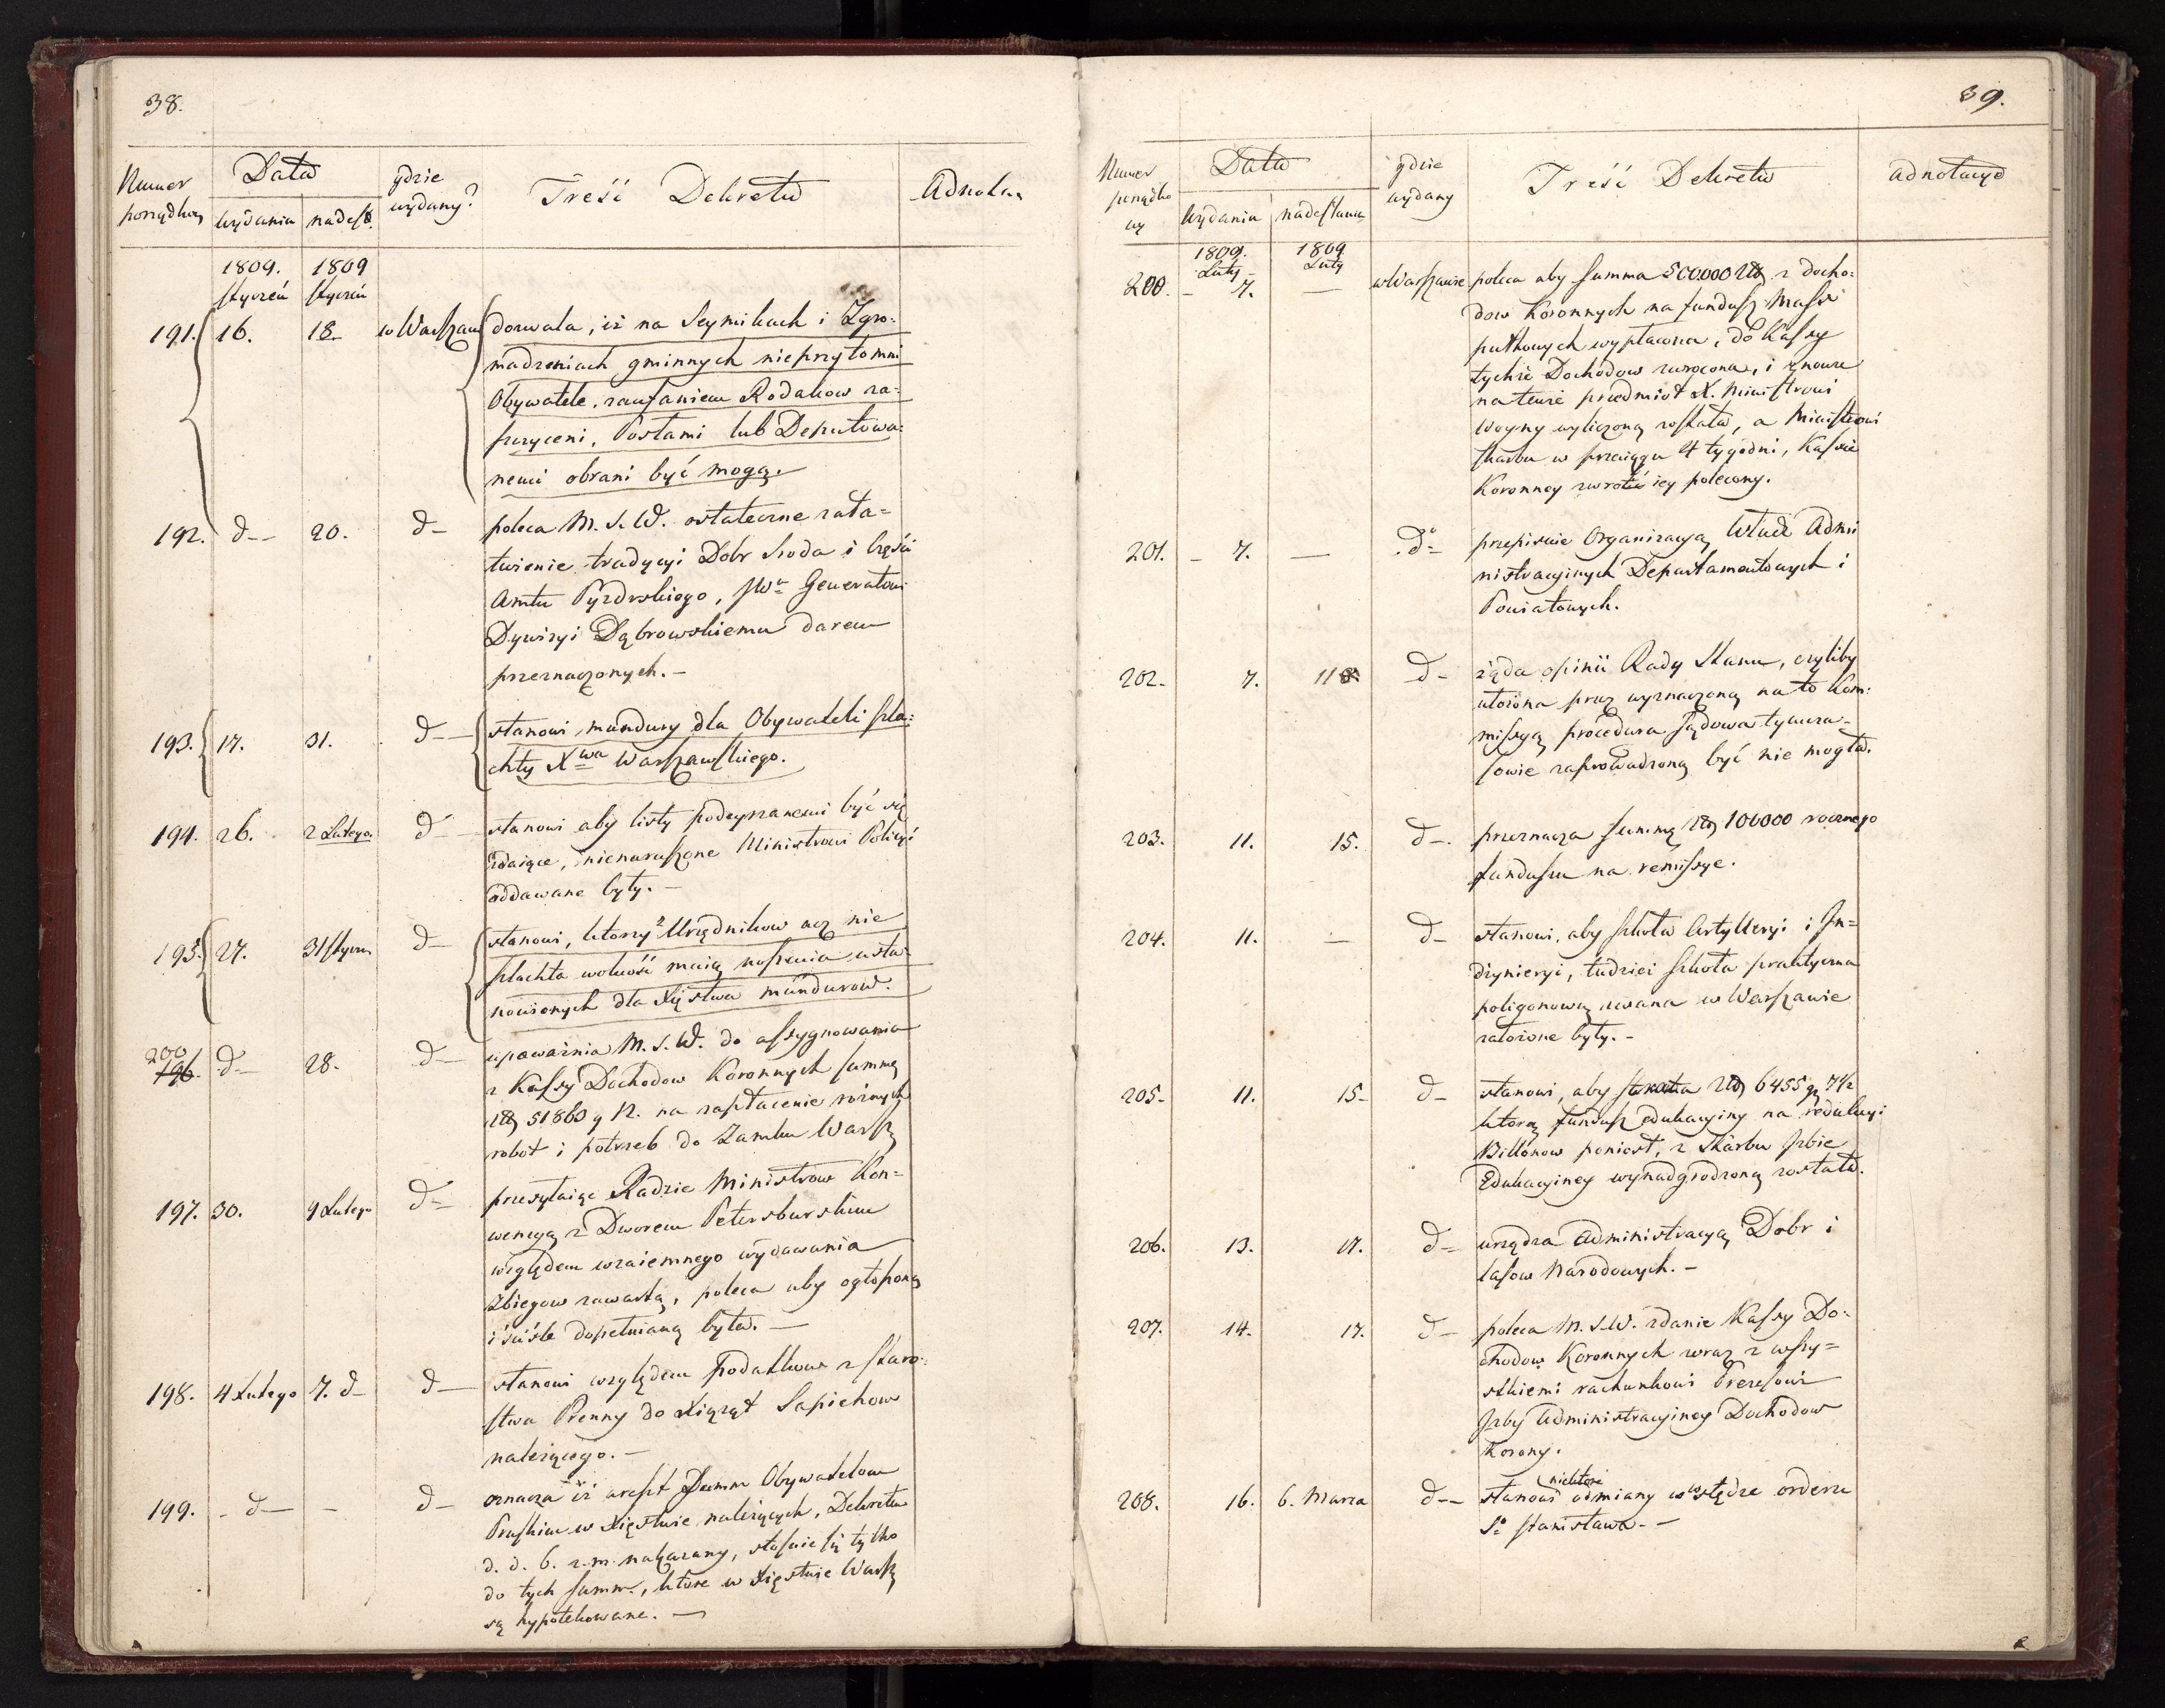 38.
Numer porządkowy Data gdzie wydany? Treść Dekretu Adnota
wydania nadesł.
1809. 1809
Styczeń Styczeń
191. 16. 18 w Warszaw dozwala, iż na Seymikach i Zgro-
madzeniach gminnych nieprzytomni
Obywatele, zaufaniem Rodakow za-
szczyceni, Posłami lub Deputowa-
nemi obrani być mogą.
192. d-- 20. d- poleca M. S. W. ostateczne zała-
twienie tradycyi Dobr Sroda i części
Amtu Pyzdrskiego, JWu Generałowi
Dywizyi Dąbrowskiemu darem
przeznaczonych. -
193. 17. 31. d-- stanowi mundury dla Obywateli szla-
chty Xwa Warszawskiego.
194. 26. 2 Lutego. d- stanowi aby listy podeyrzanemi być się
zdaiące, nienaruszone Ministrowi Policyi
oddawane były. -
195. 27. 31 Stycz. d- stanowi, ktorzy z Urzędnikow acz nie
szlachta wolność maią noszenia usta-
nowionych dla Xięstwa mundurow.
200
196. d- 28. d- upoważnia M. S. W. do assygnowania
z Kassy Dochodow Koronnych summę
Złt 51860 g 12. na zapłacenie różnych
robot i potrzeb do Zamku Warsz
197. 30. 9 Lutego d- przesyłaiąc Radzie Ministrow Kon-
wencyą z Dworem Petersburskim
względem wzaiemnego wydawania
Zbiegow zawartą, poleca aby ogłoszoną
i ściśle dopełnianą była. -
198. 4 Lutego 7. d- d- stanowi względem podatkow z Staro-
stwa Prenny do Xiąząt Sapiehow
należącego. -
199. - d- - d- oznacza iż areszt Summ Obywatelom
Pruskim w Xięstwie należących, Dekretem
d. d. 6. z. m. nakazany, stosuie się tylko
do tych summ, ktore w Xięstwie Warsz
są hypotekowane. -
39.
Numer porządkowy Data gdzie wydany Treść Dekretu Adnotacye
wydania nadesłania
1809. 1809
Luty - Luty
200. - 7. - w Warszawie poleca aby summa 500000 Złt z docho-
dow Koronnych na fundusz Massy
pułkowych wypłacona, do Kassy
tychże Dochodow zwrocona, i znowu
na tenże przedmiot X. Ministrowi
Woyny wyliczoną została, a Ministrowi
skarbu w przeciągu 4 tygodni, Kassie
Koronney zwrocić iey polecony.
201. - 7. - do- przepisuie Organizacyą Władz Admi
nistracyinych Departamentowych i
Powiatowych.
202. 7. 118. d- żąda opinii Rady Stanu, czyliby
ułożona przez wyznaczoną na to Kom-
missyą procedura sądowa tymcza-
sowie zaprowadzoną być nie mogła.
203. 11. 15. d-. przeznacza summę Złt 100000 rocznego
funduszu na remissye.
204. 11. - d- stanowi, aby szkoła Artylleryi i In-
dzynieryi, tudzież szkoła praktyczna
poligonową zwana w Warszawie
założone były. -
205. 11. 15- d- stanowi, aby strata Złt 6455 gr 7 1/2
ktorą fundusz edukacyiny na redukcyi
Billonow poniosł, z Skarbu Izbie
Edukacyiney wynadgrodzoną została.
206. 13. 17. d- urządza Administracyą Dobr i
lasow Narodowych. -
207. 14. 17. d- poleca M. S. W. zdanie Kassy Do-
chodow Koronnych wraz z wszy-
stkiemi rachunkowi Prezesowi
Izby Administracyiney Dochodow
Korony.
208. 16. 6. Marca d-- stanowi niektóre odmiany w wstędze orderu
So Stanisława. -